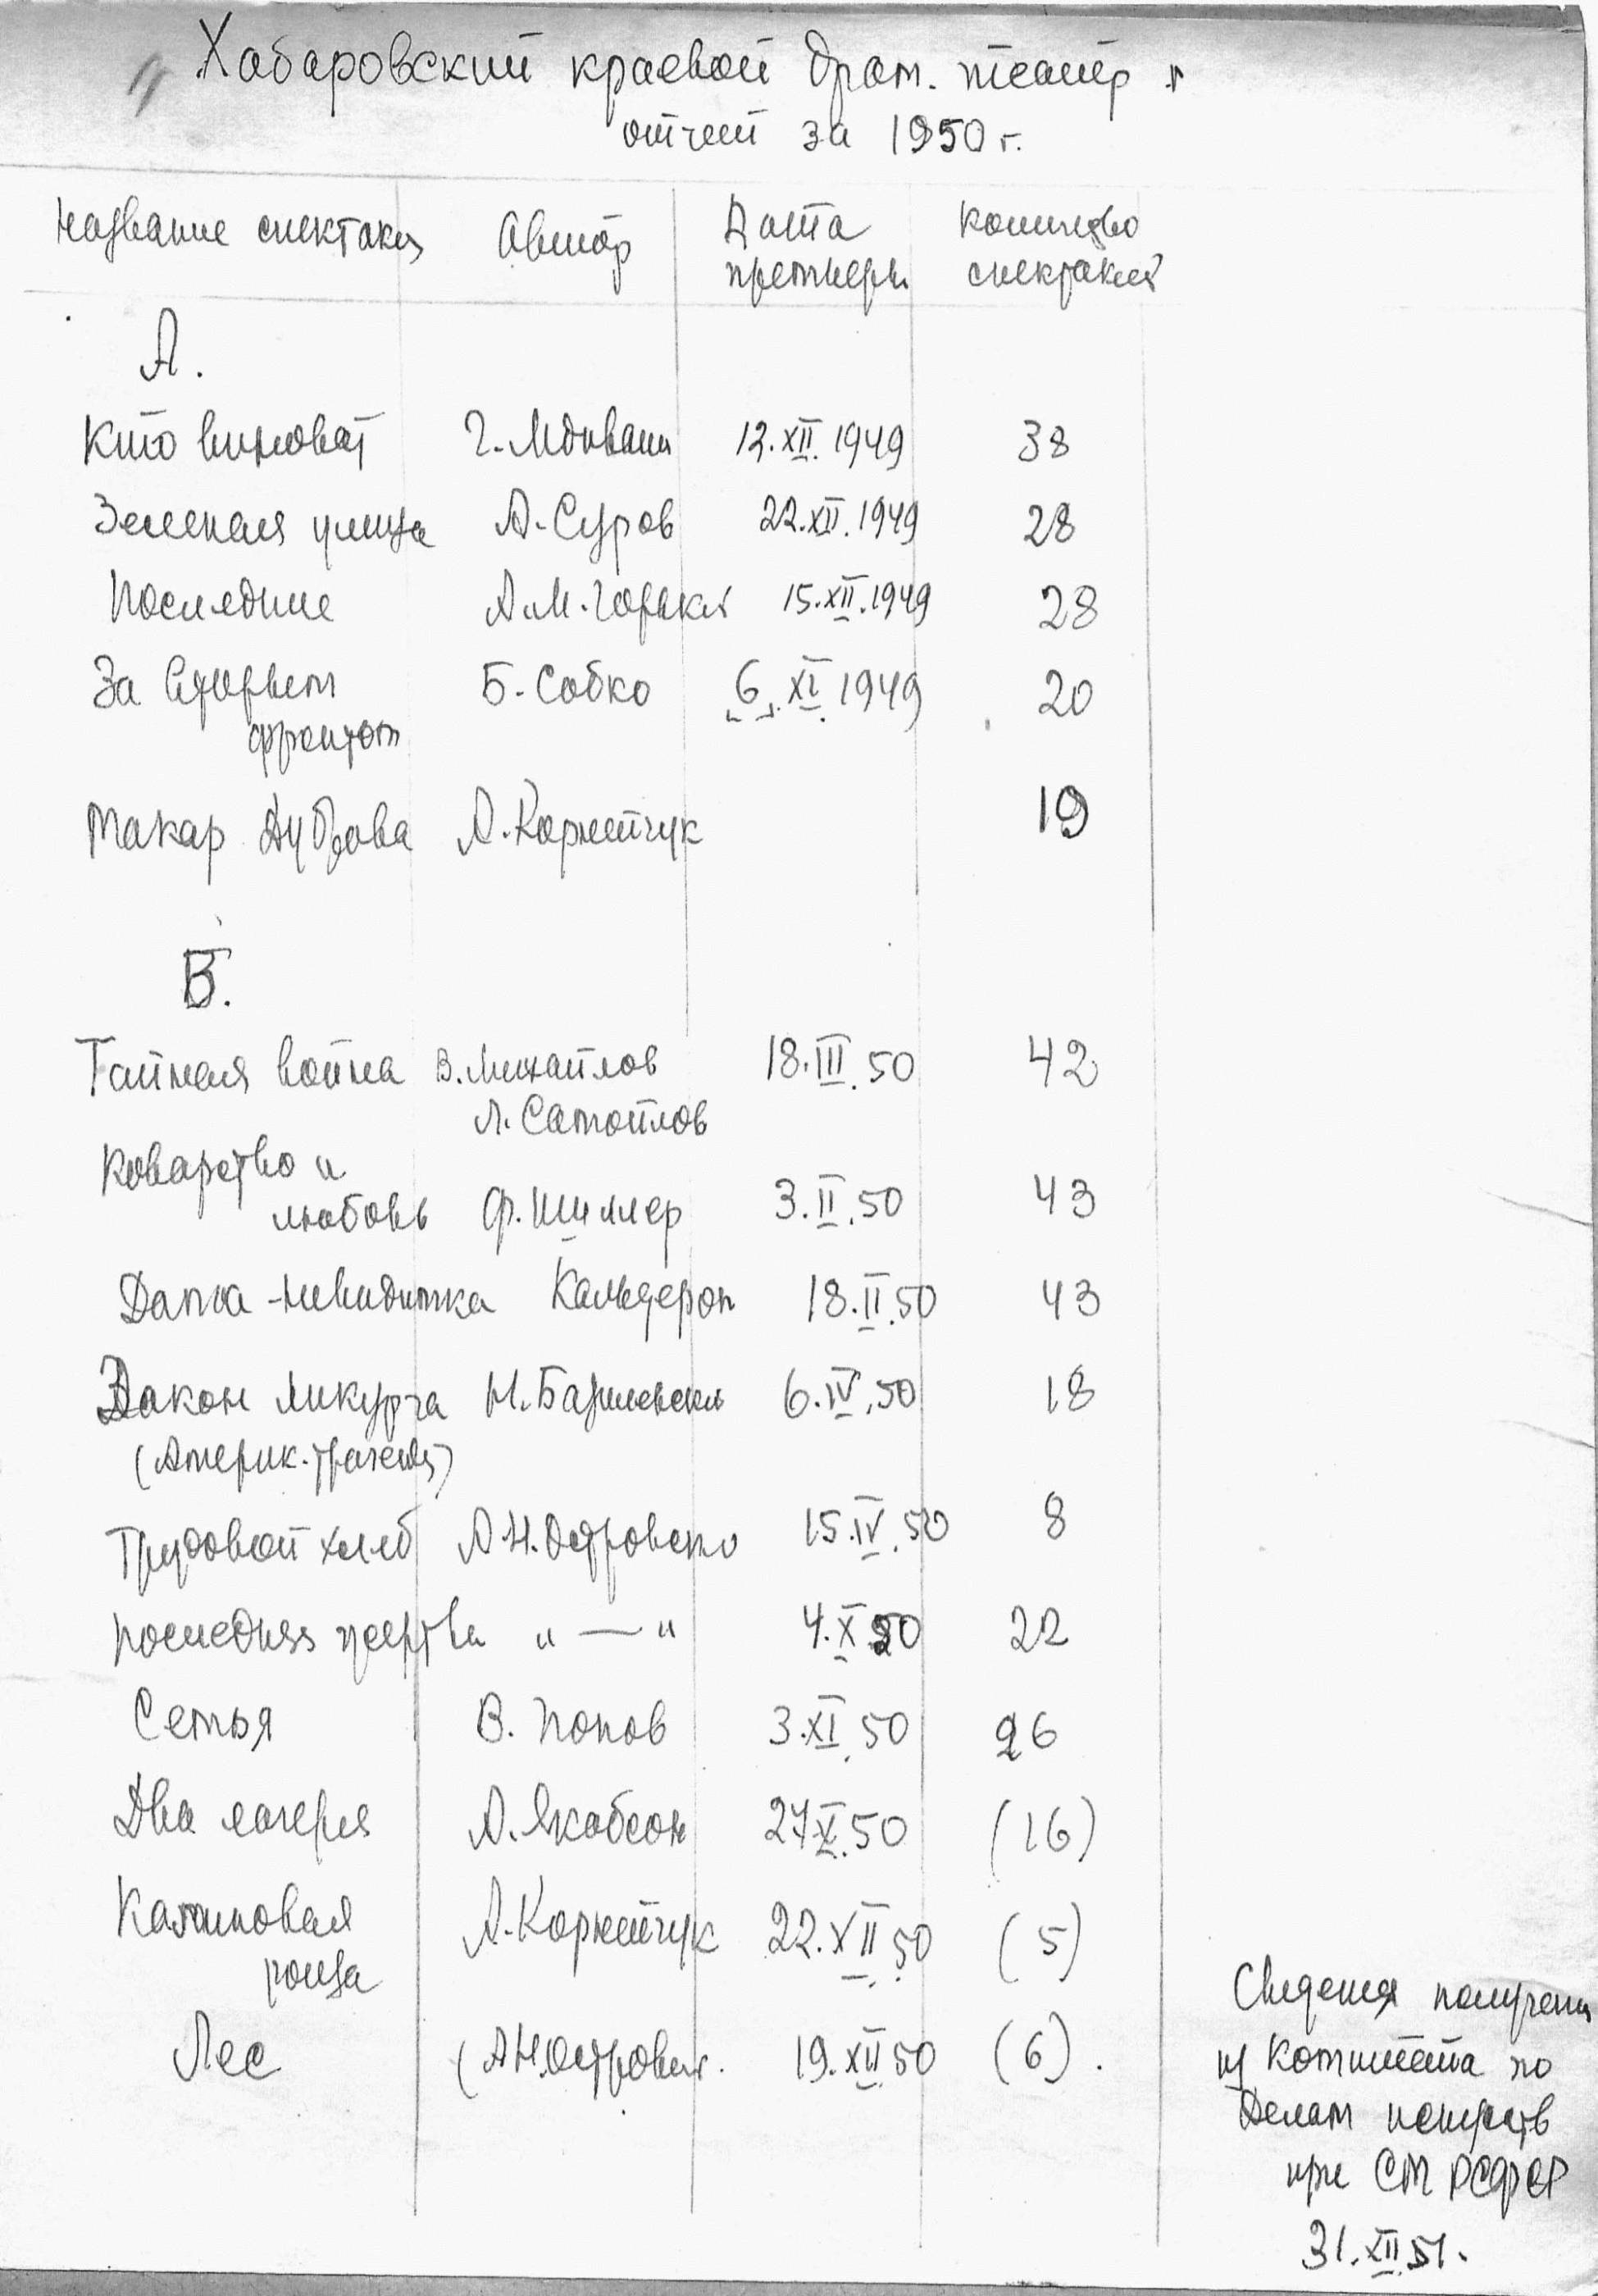 Хабаровский краевой драм. театр
отчет за 1950 г.
Название спектакля Автор Дата премьеры Количество спектаклей
А.
Кто виноват Г. Мдивани 12.XII.1949 38
Зеленая улица А. Суров 22.XII.1949 28
Последние А.М. Горький 15.XII.1949 28
За вторым В. Собко 6.XI.1949 20
фронтом
Макар Дубрава А. Корнейчук 19
Б.
Тайная война В. Михайлов 18.III.50 42
Л. Самойлов
Коварство и
любовь Ф. Шиллер 3.II.50 43
Дама-невидимка Кальдерон 18.II.50 43
Закон Ликурга Н. Базилевский 6.IV.50 18
(Америк. трагедия)
Трудовой хлеб А.Н. Островский 15.IV.50 8
Последняя жертва " — " 4.X.50 22
Семья В. Попов 3.XI.50 26
Два лагеря А. Якобсон 27.X.50 (16)
Калиновая А. Корнейчук 22.XII.50 (5)
роща
Лес (А.Н. Островский. 19.XII.50 (6).
Сведения получены
из Комитета по
делам искусств
при СМ РСФСР
31.XII.51.